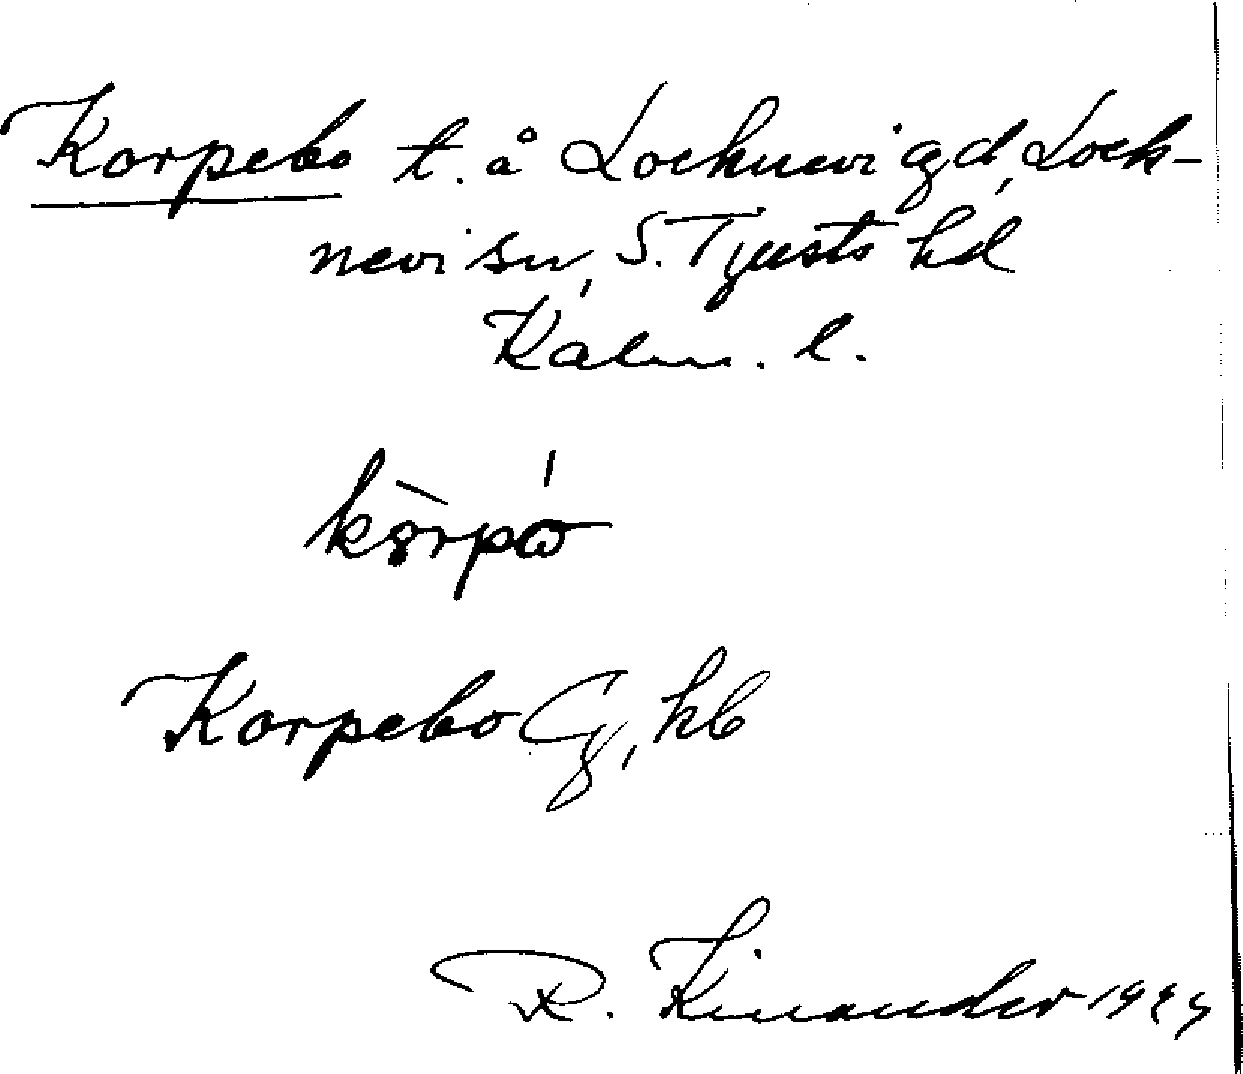 Korpebo t. å Locknevi gd, Lock-
nevi sn, S. Tjusts hd
Kalm. l.
Korpebo Cg, kb
R. Kinander